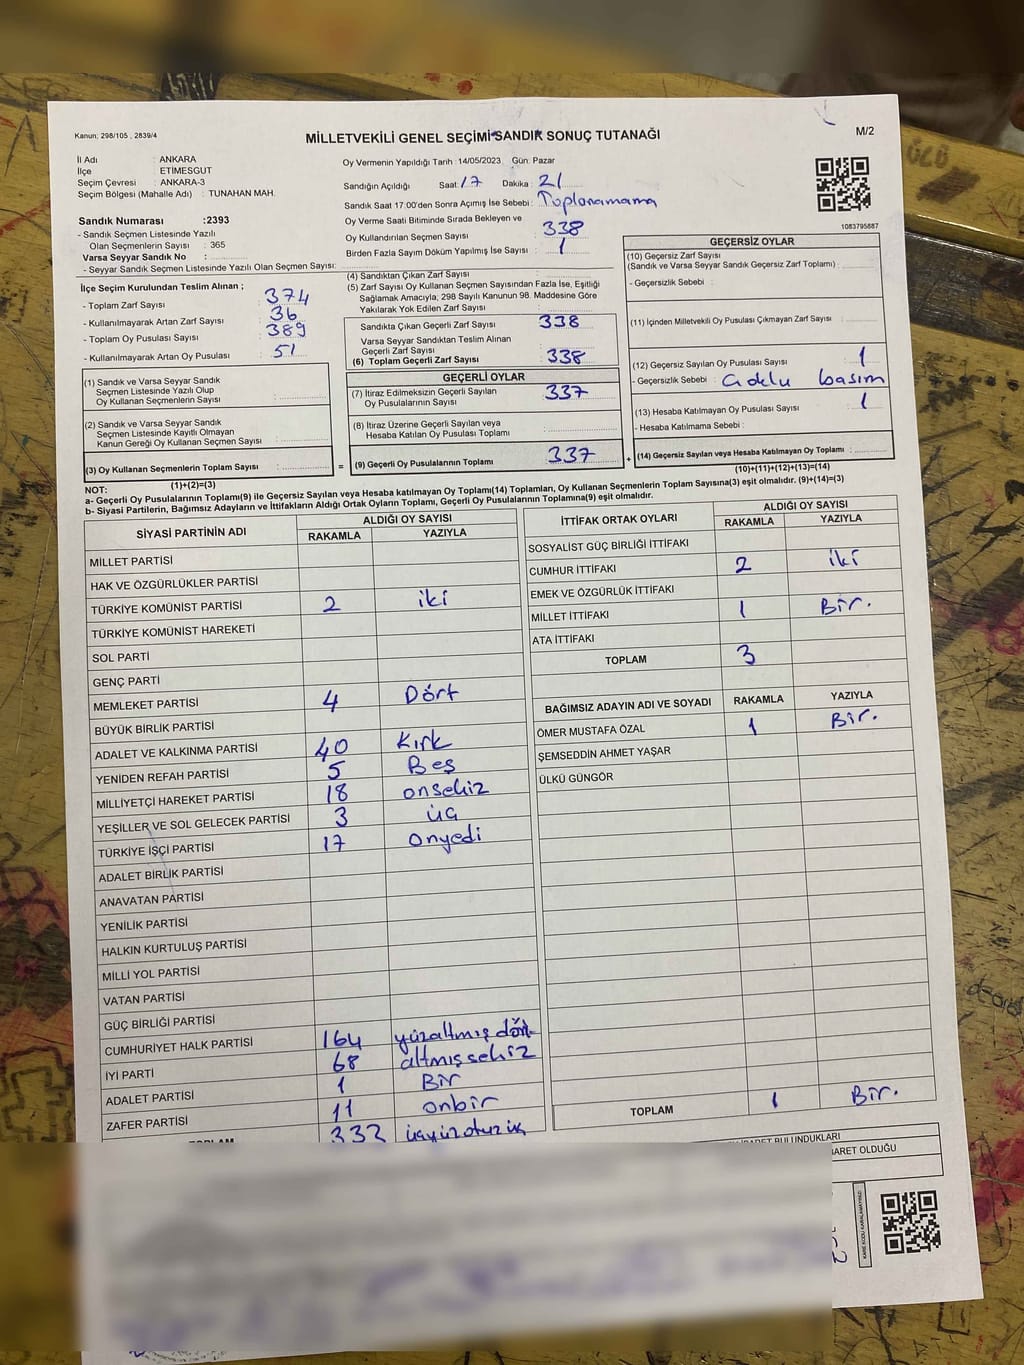 Kanun; 298/105 , 2839/4
MİLLETVEKİLİ GENEL SEÇİMİ SANDIK SONUÇ TUTANAĞI
M/2
İl Adı : ANKARA
İlçe : ETIMESGUT
Seçim Çevresi : ANKARA-3
Seçim Bölgesi (Mahalle Adı) : TUNAHAN MAH.
Oy Vermenin Yapıldığı Tarih : 14/05/2023 Gün: Pazar
Sandığın Açıldığı Saat: 17 Dakika : 21
Sandık Saat 17:00'den Sonra Açımış İse Sebebi : Toplanamama
Oy Verme Saati Bitiminde Sırada Bekleyen ve
Oy Kullandırılan Seçmen Sayısı 338
Birden Fazla Sayım Döküm Yapılmış İse Sayısı : 1
1083795887
Sandık Numarası :2393
- Sandık Seçmen Listesinde Yazılı
Olan Seçmenlerin Sayısı : 365
Varsa Seyyar Sandık No :
- Seyyar Sandık Seçmen Listesinde Yazılı Olan Seçmen Sayısı:
İlçe Seçim Kurulundan Teslim Alınan ;
- Toplam Zarf Sayısı : 374
- Kullanılmayarak Artan Zarf Sayısı : 36
- Toplam Oy Pusulası Sayısı : 389
- Kullanılmayarak Artan Oy Pusulası : 51
(1) Sandık ve Varsa Seyyar Sandık
Seçmen Listesinde Yazılı Olup
Oy Kullanan Seçmenlerin Sayısı :
(2) Sandık ve Varsa Seyyar Sandık
Seçmen Listesinde Kayıtlı Olmayan
Kanun Gereği Oy Kullanan Seçmen Sayısı :
(3) Oy Kullanan Seçmenlerin Toplam Sayısı :
(1)+(2)=(3)
(4) Sandıktan Çıkan Zarf Sayısı :
(5) Zarf Sayısı Oy Kullanan Seçmen Sayısından Fazla İse, Eşitliği
Sağlamak Amacıyla, 298 Sayılı Kanunun 98. Maddesine Göre
Yakılarak Yok Edilen Zarf Sayısı :
Sandıkta Çıkan Geçerli Zarf Sayısı : 338
Varsa Seyyar Sandıktan Teslim Alınan
Geçerli Zarf Sayısı :
(6) Toplam Geçerli Zarf Sayısı : 338
GEÇERLİ OYLAR
(7) İtiraz Edilmeksizin Geçerli Sayılan
Oy Pusulalarının Sayısı : 337
(8) İtiraz Üzerine Geçerli Sayılan veya
Hesaba Katılan Oy Pusulası Toplamı :
= (9) Geçerli Oy Pusulalarının Toplamı : 337 +
GEÇERSİZ OYLAR
(10) Geçersiz Zarf Sayısı
(Sandık ve Varsa Seyyar Sandık Geçersiz Zarf Toplamı) :
- Geçersizlik Sebebi :
(11) İçinden Milletvekili Oy Pusulası Çıkmayan Zarf Sayısı :
(12) Geçersiz Sayılan Oy Pusulası Sayısı : 1
- Geçersizlik Sebebi : basım
(13) Hesaba Katılmayan Oy Pusulası Sayısı : 1
- Hesaba Katılmama Sebebi :
(14) Geçersiz Sayılan veya Hesaba Katılmayan Oy Toplamı :
(10)+(11)+(12)+(13)=(14)
NOT:
a- Geçerli Oy Pusulalarının Toplamı(9) ile Geçersiz Sayılan veya Hesaba katılmayan Oy Toplamı(14) Toplamları, Oy Kullanan Seçmenlerin Toplam Sayısına(3) eşit olmalıdır. (9)+(14)=(3)
b- Siyasi Partilerin, Bağımsız Adayların ve İttifakların Aldığı Ortak Oyların Toplamı, Geçerli Oy Pusulalarının Toplamına(9) eşit olmalıdır.
SİYASİ PARTİNİN ADI ALDIĞI OY SAYISI
RAKAMLA YAZIYLA
MİLLET PARTİSİ
HAK VE ÖZGÜRLÜKLER PARTİSİ
TÜRKİYE KOMÜNİST PARTİSİ 2 iki
TÜRKİYE KOMÜNİST HAREKETİ
SOL PARTİ
GENÇ PARTİ
MEMLEKET PARTİSİ 4 Dört
BÜYÜK BİRLİK PARTİSİ
ADALET VE KALKINMA PARTİSİ 40 Kırk
YENİDEN REFAH PARTİSİ 5 Beş
MİLLİYETÇİ HAREKET PARTİSİ 18 onsekiz
YEŞİLLER VE SOL GELECEK PARTİSİ 3 üç
TÜRKİYE İŞÇİ PARTİSİ 17 onyedi
ADALET BİRLİK PARTİSİ
ANAVATAN PARTİSİ
YENİLİK PARTİSİ
HALKIN KURTULUŞ PARTİSİ
MİLLİ YOL PARTİSİ
VATAN PARTİSİ
GÜÇ BİRLİĞİ PARTİSİ
CUMHURİYET HALK PARTİSİ 164 yüzaltmış dört
İYİ PARTİ 68 altmışsekiz
ADALET PARTİSİ 1 Bir
ZAFER PARTİSİ 11 onbir
333 üçyüzotuzüç
İTTİFAK ORTAK OYLARI ALDIĞI OY SAYISI
RAKAMLA YAZIYLA
SOSYALİST GÜÇ BİRLİĞİ İTTİFAKI
CUMHUR İTTİFAKI 2 iki
EMEK VE ÖZGÜRLÜK İTTİFAKI
MİLLET İTTİFAKI 1 Bir.
ATA İTTİFAKI
TOPLAM 3
BAĞIMSIZ ADAYIN ADI VE SOYADI RAKAMLA YAZIYLA
ÖMER MUSTAFA ÖZAL 1 Bir.
ŞEMSEDDİN AHMET YAŞAR
ÜLKÜ GÜNGÖR
TOPLAM 1 Bir.
BULUNDUKLARI
OLDUĞU